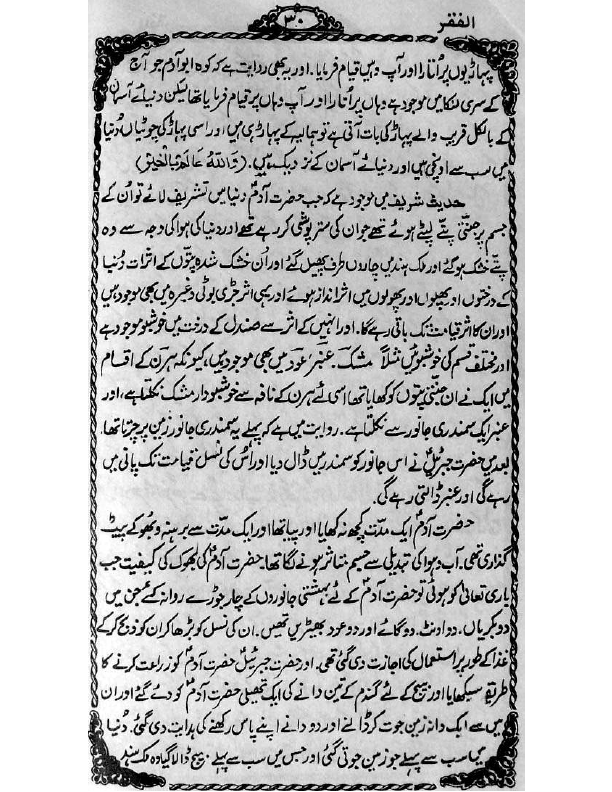 الفقر
۳۰
پہاڑیوں پر اُتارا اور آپ وہیں قیام فرمایا۔ اور یہ بھی روایت ہے کہ کوہ ابو آدم جو آج
کے سری لنکا میں موجود ہے وہاں پر اُتارا اور آپ وہاں پر قیام فرمایا تھا لیکن دنیا کے آسمان
کے بالکل قریب والے پہاڑ کی بات آتی ہے تو ہمالیہ کے پہاڑ ہی ہیں اور اسی پہاڑ کی چوٹیاں دُنیا
میں سب سے اونچی ہیں اور دنیائے آسمان کے نزدیک ہیں۔
حدیث شریف میں موجود ہے کہ جب حضرت آدمؑ دنیا میں تشریف لائے تو اُن کے
جسم پر جنتی پتے لپٹے ہوئے تھے جو ان کی ستر پوشی کر رہے تھے اور دنیا کی ہوا کی وجہ سے وہ
پتے خشک ہو گئے اور ملک ہند میں چاروں طرف پھیل گئے اور اُن خشک شدہ پتوں کے اثرات دُنیا
کے درختوں اور پھلوں اور پھولوں میں اثر انداز ہوئے اور یہی اثر جڑی بوٹی وغیرہ میں بھی موجود ہیں
اور ان کا اثر قیامت تک باقی رہے گا۔ اور انہیں کے اثر سے صندل کے درخت میں خوشبو موجود ہے
اور مختلف قسم کی خوشبوئیں مثلاً مشک۔ عنبر عود میں بھی موجود ہیں، کیونکہ ہرن کے اقسام
میں ایک نے ان جنتی پتوں کو کھایا تھا اسی لئے ہرن کے نافہ سے خوشبودار مشک نکلتا ہے، اور
عنبر ایک سمندری جانور سے نکلتا ہے۔ روایت میں ہے کہ پہلے یہ سمندری جانور زمین پر چرتا تھا۔
بعد میں حضرت جبرئیلؑ نے اس جانور کو سمندر میں ڈال دیا اور اُس کی نسل قیامت تک پانی میں
رہے گی اور عنبر ڈالتی رہے گی۔
حضرت آدمؑ ایک مدت کچھ نہ کھایا اور پیا تھا اور ایک مدت سے برہنہ و بھوکے پیٹ
گذاری تھی۔ آب و ہوا کی تبدیلی سے جسم متاثر ہونے لگا تھا۔ حضرت آدمؑ کی بھوک کی کیفیت جب
باری تعالیٰ کو ہوئی تو حضرت آدمؑ کے لئے بہشتی جانوروں کے چار جوڑے روانہ کئے جن میں
دو بکریاں۔ دو اونٹ۔ دو گائے اور دو عدد بھیڑیں تھیں۔ ان کی نسل کو بڑھا کر ان کو ذبح کر کے
غذا کے طور پر استعمال کی اجازت دی گئی تھی۔ اور حضرت جبرئیلؑ حضرت آدمؑ کو زراعت کرنے کا
طریقہ سیکھایا اور بیج کے لئے گندم کے تین دانے کی ایک تھیلی حضرت آدمؑ کو دے گئے اور ان
میں سے ایک دانہ زمین جوت کر ڈالنے اور دو دانے اپنے پاس رکھنے کی ہدایت دی گئی۔ دُنیا
میں سب سے پہلے جو زمین جوتی گئی اور جس میں سب سے پہلے بیج ڈالا گیا وہ ملک ہند